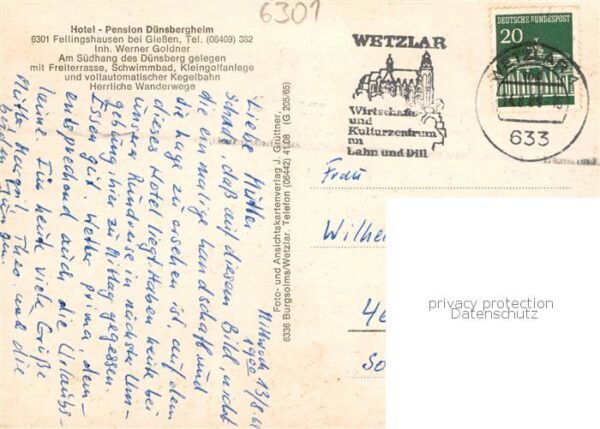 6301
Hotel - Pension Dünsbergheim
6301 Fellingshausen bei Gießen, Tel. (06409) 382
Inh. Werner Goldner
Am Südhang des Dünsberg gelegen
mit Freiterrasse, Schwimmbad, Kleingolfanlage
und vollautomatischer Kegelbahn
Herrliche Wanderwege
WETZLAR
Wirtschafts-
und
Kulturzentrum
an
Lahn und Dill
DEUTSCHE BUNDESPOST
20
633
Foto- und Ansichtskartenverlag J. Grüttner,
6336 Burgsolms/Wetzlar. Telefon (06442) 4108 (G 205/65)
Mittwoch 13/8.
1900
Liebe Mutter
schade daß auf diesem Bild, nicht
die einmalige Landschaft und
die Lage zu ersehen ist auf dem
dieses Hotel liegt. Haben heute bei
unserer Rundreise in nächster Um-
gebung hier zu Mittag gegessen.
Essen gut. Wetter prima, dem-
entsprechend auch die Urlaubs-
laune. Für heute viele Grüße
Mutter Theo und die
beiden Jungen
Frau
Wilhe
privacy protection
Datenschutz